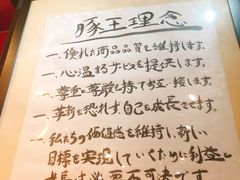 豚王理念
一、優れた商品品質を維持します。
一、心温まるサービスを提供します。
一、尊重と尊厳を持って互いに接します。
一、革新を恐れず、自己を成長させます。
一、私たちの価値感を維持し、新しい
目標を実現していくために利益と
成長は必要不可欠です。